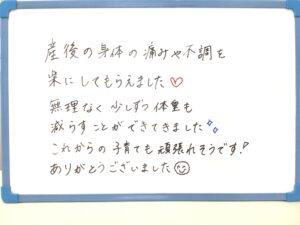 産後の身体の痛みや不調を
楽にしてもらえました♡
無理なく少しずつ体重も
減らすことができてきました
これからの子育ても頑張れそうです!
ありがとうございました☺